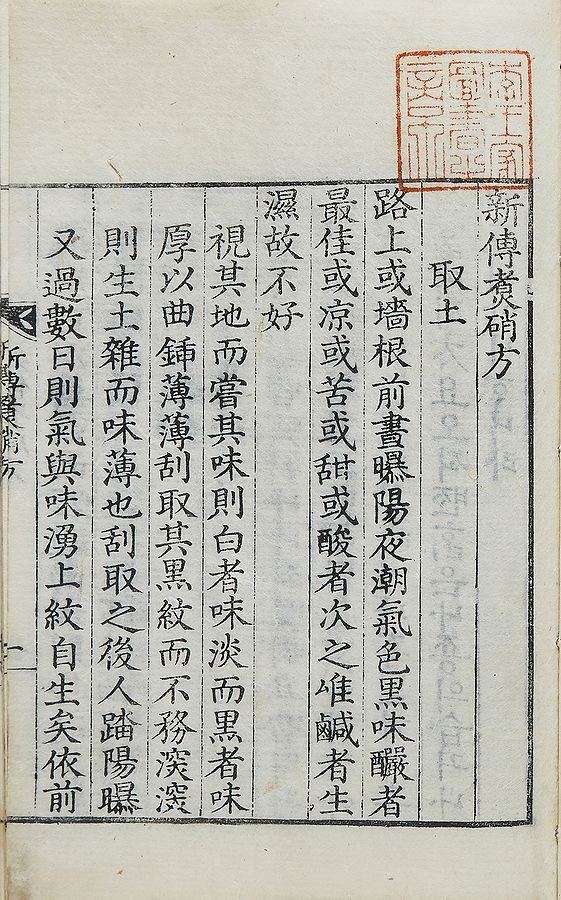 李王家
圖書之
章
新傳煑硝方
取土
路上或墻根前晝曝陽夜潮氣色黑味釅者
最佳或凉或苦或甜或酸者次之唯鹹者生
濕故不好
視其地而嘗其味則白者味淡而黑者味
厚以曲鍤薄薄刮取其黑紋而不務深深
則生土雜而味薄也刮取之後人踏陽曝
又過數日則氣與味湧上紋自生矣依前
新傳煑硝方
一